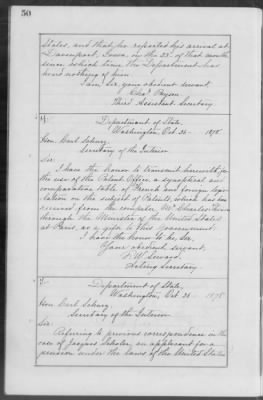 50
States, and that he reported his arrival at
Davenport, Iowa, on the 23d of that month
since which time the Department has
heard nothing of him.
I am Sir, your obedient servant.
Chas. Payson
Third Assistant Secretary.
Department of State,
Washington, Oct. 26 1878.
Hon. Carl Schurz,
Secretary of the Interior
Sir:
I have the honor to transmit herewith, for
the use of the Patent Office, a synoptical and
comparative table of French and foreign legis-
lation on the subject of Patents, which has been
received from the compiler, Mr. Charles
through the Minister of the United States
at Paris, as a gift to this government.
I have the honor to be, Sir,
Your obedient servant,
F. W. Seward,
Acting Secretary
Department of State,
Washington, Oct 1878
Hon. Carl Schurz,
Secretary of the Interior
Sir.
Referring to previous correspondence in the
case of an applicant for a
pension under the laws of the United States